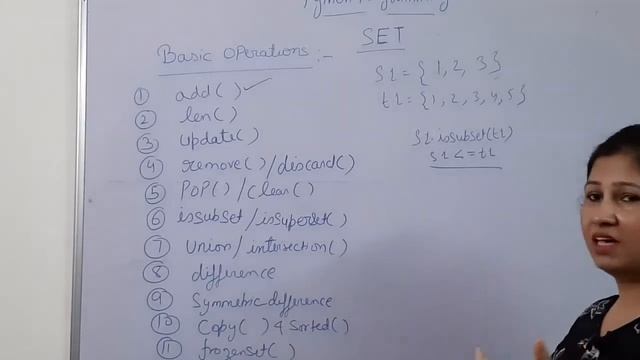 Python Programming
SET
Basic Operations :-
① add( ) ✓
② len( )
③ update( )
④ remove( )/discard( )
⑤ POP( ) / clear( )
⑥ issubset / issuperset( )
⑦ Union / intersection( )
⑧ difference
⑨ Symmetric difference
⑩ Copy( ) & Sorted( )
⑪ frozenset( )
S1 = { 1, 2, 3 }
t1 = { 1, 2, 3, 4, 5 }
S1.issubset(t1)
S1 <= t1